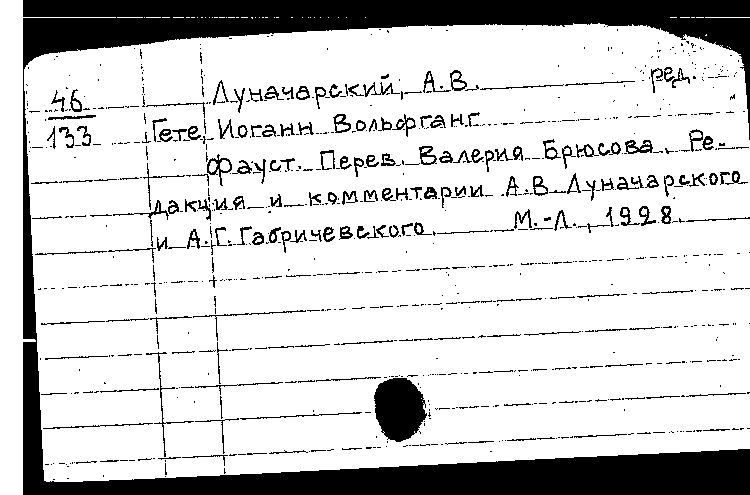 46
133
Луначарский, А.В. ред.
Гете, Иоганн Вольфганг
Фауст. Перев. Валерия Брюсова. Ре-
дакция и комментарии А.В. Луначарского
и А.Г. Габричевского. М.-Л., 1928.